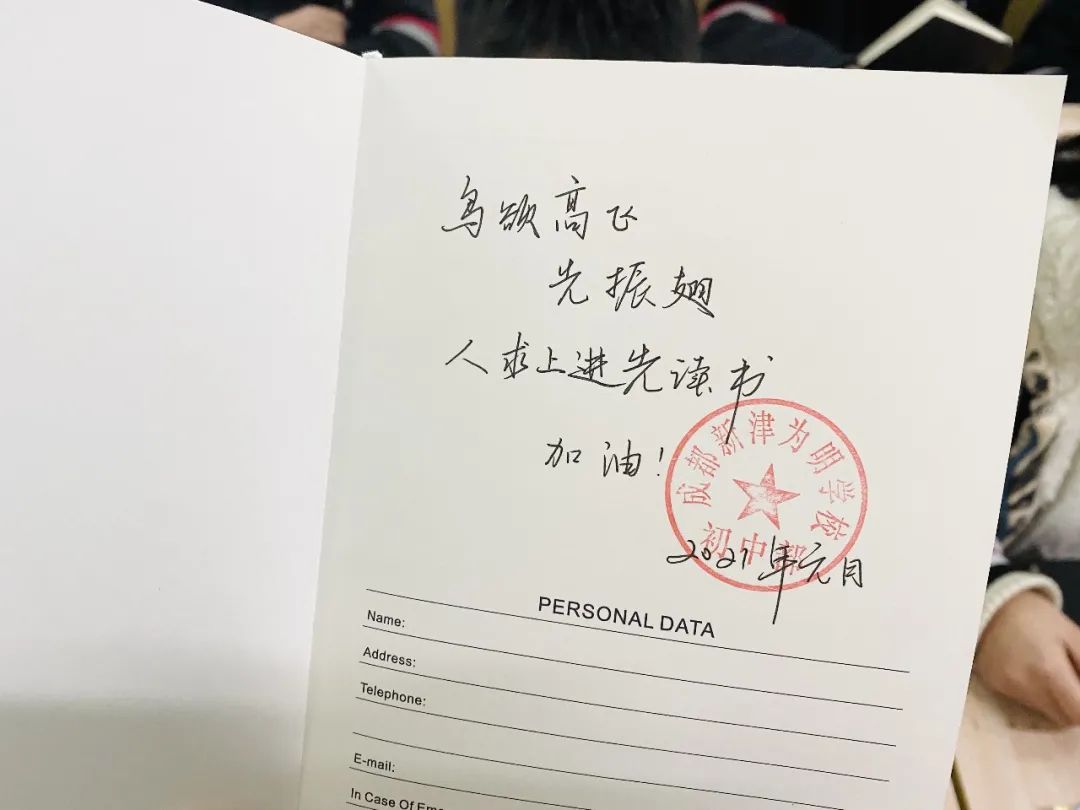 鸟欲高飞
先振翅
人求上进先读书
加油！
成都新津为明学校
初中部
2021年元月
PERSONAL DATA
Name:
Address:
Telephone:
E-mail:
In Case Of